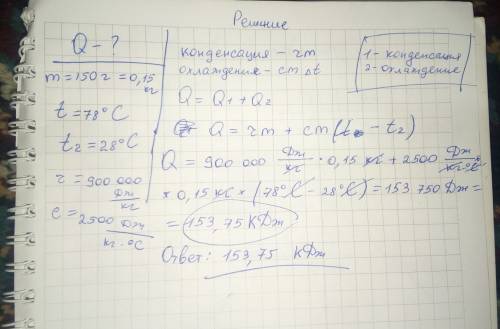 Решение
Q - ?
m = 150 г = 0,15 кг
t = 78°C
t₂ = 28°C
r = 900.000 Дж/кг
c = 2500 Дж/кг·°C
конденсация - rm
охлаждение - cm∆t
1 - конденсация
2 - охлаждение
Q = Q₁ + Q₂
Q = rm + cm(t - t₂)
Q = 900 000 Дж/кг · 0,15 кг + 2500 Дж/кг·°C
× 0,15 кг × (78°C - 28°C) = 153 750 Дж =
= 153,75 КДж
Ответ: 153,75 КДж